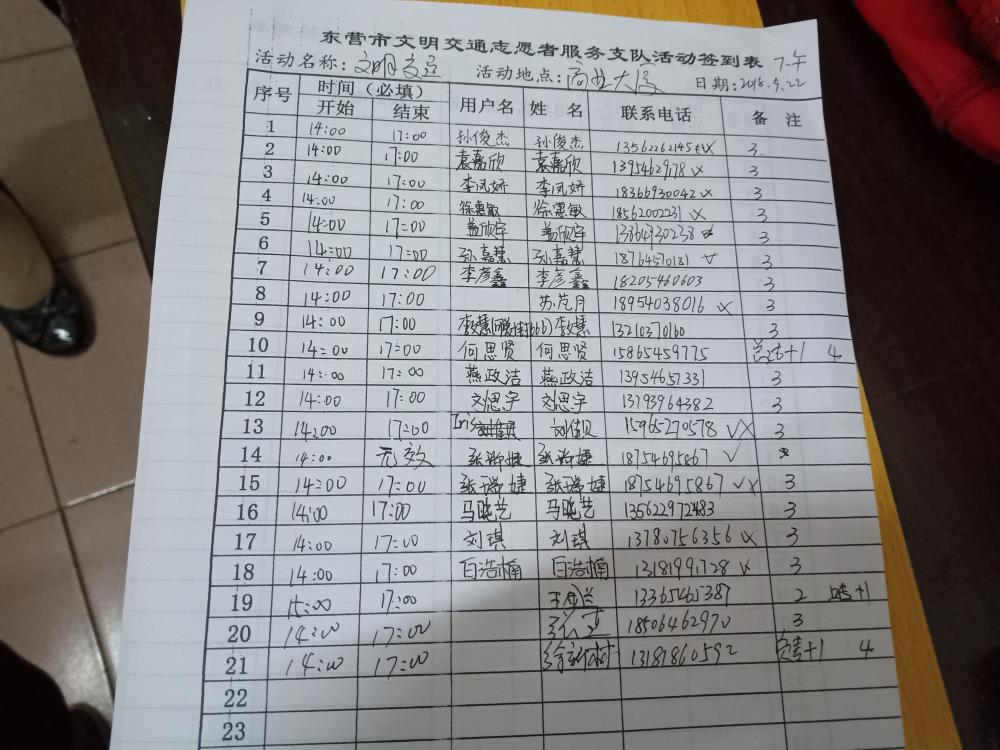 东营市文明交通志愿者服务支队活动签到表 下午
活动名称：文明交通 活动地点：商业大厦 日期：2018.9.22
序号 时间（必填） 用户名 姓 名 联系电话 备 注
开始 结束
1 14:00 17:00 孙俊杰 孙俊杰 13562262145 3.
2 14:00 17:00 袁嘉欣 袁嘉欣 13954629178 3
3 14:00 17:00 李凤娇 李凤娇 18366930042 3
4 14:00 17:00 徐惠敏 徐惠敏 18562002231 3
5 14:00 17:00 盖欣宇 盖欣宇 13864730238 3
6 14:00 17:00 孙嘉慧 孙嘉慧 18764570181 3
7 14:00 17:00 李彦鑫 李彦鑫 18205460603 3
8 14:00 17:00 苏芃月 18954038016 3
9 14:00 17:00 李慧 李慧 13210370160 3
10 14:00 17:00 何思贤 何思贤 15865459775 +1 4
11 14:00 17:00 燕政洁 燕政洁 13954657331 3
12 14:00 17:00 刘思宇 刘思宇 13793964382 3
13 14:00 17:00 Iris 刘佳贝 15965270578 3
14 14:00 无效 张瑞婕 张瑞婕 18754695867
15 14:00 17:00 张瑞婕 张瑞婕 18754695867 3
16 14:00 17:00 马晓艺 马晓艺 135622972483 3
17 14:00 17:00 刘琪 刘琪 13780756356 3
18 14:00 17:00 白浩楠 白浩楠 13181991728 3
19 15:00 17:00 王金兰 13365465387 2 +1
20 14:00 17:00 18506462970 3
21 14:00 17:00 徐新树 13181860592 +1 4
22
23